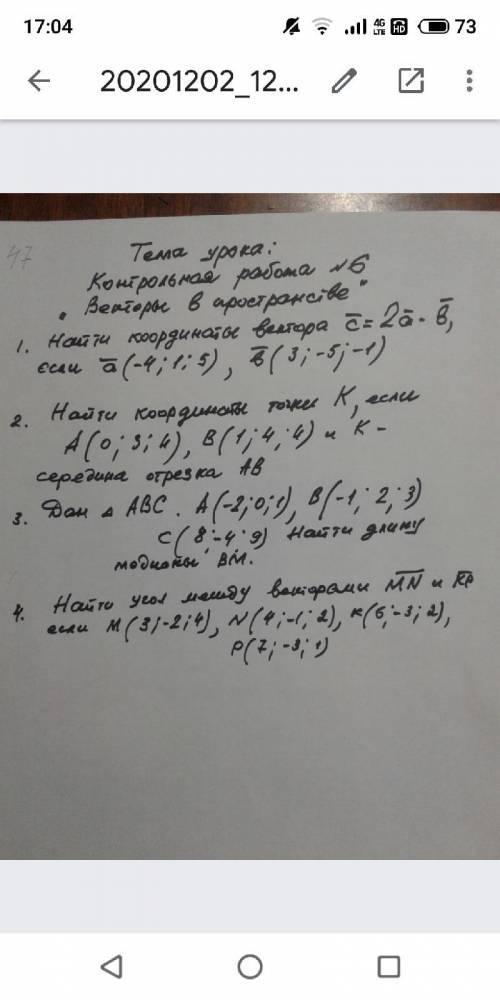 17:04 4G LTE HD 73
20201202_12...
47
Тема урока:
Контрольная работа №6
"Векторы в пространстве"
1. Найти координаты вектора c̄ = 2ā - b̄,
если ā(-4; 1; 5), b̄(3; -5; -1)
2. Найти координаты точки K, если
A(0; 3; 4), B(1; 4; 4) и K -
середина отрезка AB
3. Дан △ ABC. A(-2; 0; 1), B(-1; 2; 3)
C(8; -4; 9) Найти длину
медианы BM.
4. Найти угол между векторами M̅N̅ и K̅P̅
если M(3; -2; 4), N(4; -1; 2), K(6; -3; 2),
P(7; -3; 1)